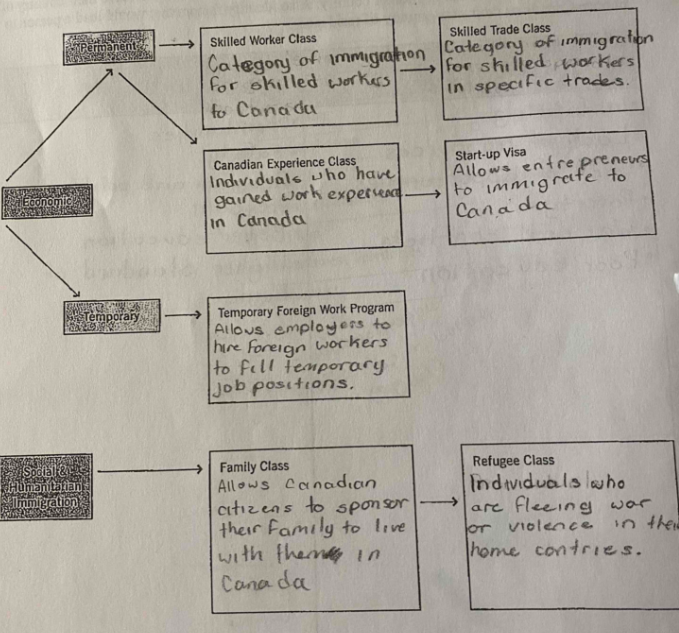 Permanent
Skilled Worker Class
Category of immigration
for skilled workers
to Canada
Skilled Trade Class
Category of immigration
for skilled workers
in specific trades.
Economic
Canadian Experience Class
Individuals who have
gained work experience
in Canada
Start-up Visa
Allows entrepreneurs
to immigrate to
Canada
Temporary
Temporary Foreign Work Program
Allows employers to
hire foreign workers
to fill temporary
job positions.
Social &
Humanitarian
Immigration
Family Class
Allows Canadian
citizens to sponsor
their family to live
with them in
Canada
Refugee Class
Individuals who
are fleeing war
or violence in their
home contries.